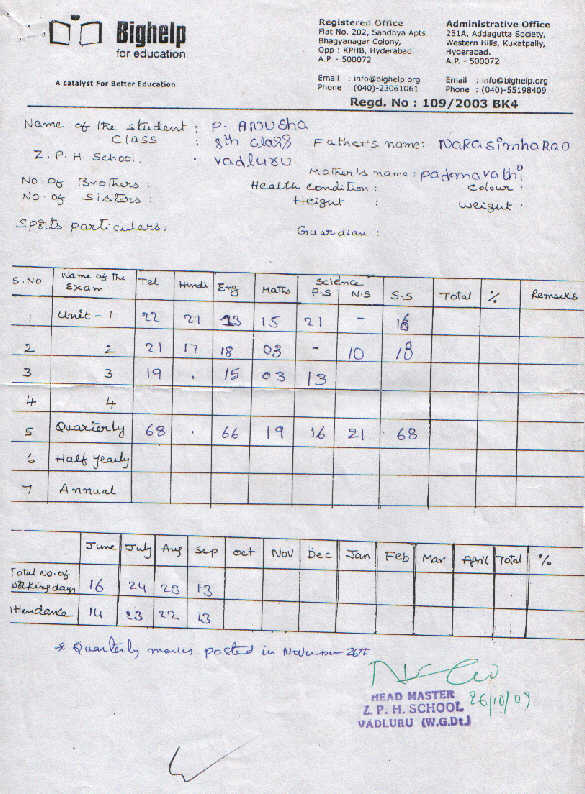 Bighelp
for education
A catalyst For Better Education
Registered Office
Flat No. 202, Sandaya Apts
Bhagyanagar Colony,
Opp : KPHB, Hyderabad.
A.P. - 500072
Email : info@bighelp.org
Phone (040)-23061061
Administrative Office
251A, Addagutta Society,
Western Hills, Kukatpally,
Hyderabad.
A.P. - 500072
Email : info@bighelp.org
Phone : (040)-55198409
Regd. No : 109/2003 BK4
Name of the student : P. Anusha
Class : 8th class Father's name: Narasimha Rao
Z. P. H School. : Vadluru
Mother's name : padmavathi
No. Of Brothers : Health condition : Colour :
No. of Sisters : Height : Weight :
Sports particulars. Guardian :
S.No Name of the Exam Tel Hindi Eng Maths Science P.S N.S S.S Total % Remarks
1 Unit - 1 22 21 15 21 -
2 2 21 17 18 03 - 10 18
3 3 19 . 15 03 13
4 4
5 Quarterly 68 . 66 19 16 21 68
6 Half yearly
7 Annual
June July Aug Sep Oct Nov Dec Jan Feb Mar April Total %
Total No. of working days 16 24 23 13
Attendance 14 23 22 13
* Quarterly marks posted in November 26th
HEAD MASTER
Z. P. H. SCHOOL
VADLURU (W.G.Dt.)
26/10/09